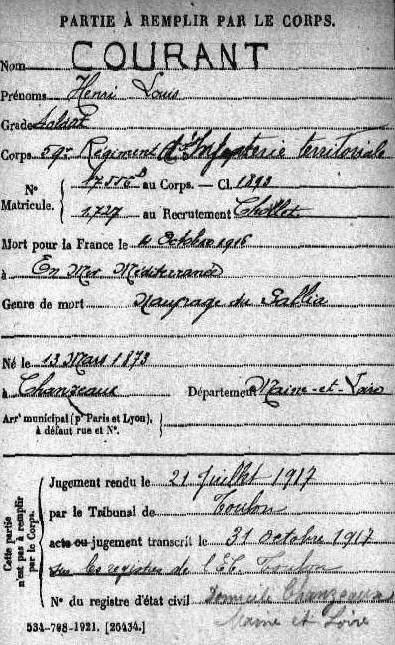 PARTIE À REMPLIR PAR LE CORPS.
Nom COURANT
Prénoms Henri Louis
Grade Soldat
Corps 59e Régiment d'Infanterie territoriale
N° Matricule. { 17556 B au Corps. — Cl. 1893
1.727 au Recrutement Cholet
Mort pour la France le 4 Octobre 1916
à En Mer Méditerranée
Genre de mort Naufrage du Gallia
Né le 13 Mars 1873
à Chanzeaux Département Maine-et-Loire
Arrt municipal (pr Paris et Lyon), à défaut rue et N°.
Cette partie n'est pas à remplir par le Corps.
Jugement rendu le 21 Juillet 1917
par le Tribunal de Toulon
acte ou jugement transcrit le 31 Octobre 1917
sur les registres de l'Et. Toulon
N° du registre d'état civil Domicile Chanzeaux
Maine et Loire
534-708-1921. [26434.]